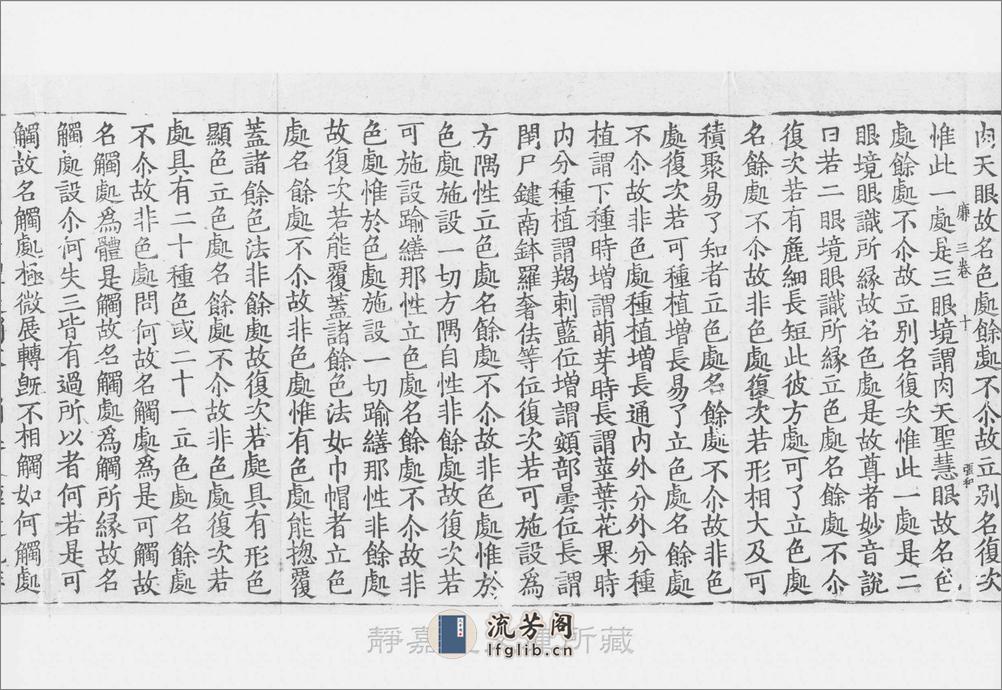 肉天眼故名色處餘處不尒故立別名復次
惟此一處是三眼境謂肉天聖慧眼故名色
廉三卷 十 張和
處餘處不尒故立別名復次惟此一處是二
眼境眼識所緣故名色處是故尊者妙音說
曰若二眼境眼識所緣立色處名餘處不尒
復次若有麁細長短此彼方處可了立色處
名餘處不尒故非色處復次若形相大及可
積聚易了知者立色處名餘處不尒故非色
處復次若可種植增長易了立色處名餘處
不尒故非色處種植增長通內外分外分種
植謂下種時增謂萌芽時長謂莖葉花果時
內分種植謂羯剌藍位增謂頞部曇位長謂
閉尸鍵南鉢羅奢佉等位復次若可施設為
方隅性立色處名餘處不尒故非色處惟於
色處施設一切方隅自性非餘處故復次若
可施設踰繕那性立色處名餘處不尒故非
色處惟於色處施設一切踰繕那性非餘處
故復次若能覆蓋諸餘色法如巾帽者立色
處名餘處不尒故非色處惟有色處能揔覆
蓋諸餘色法非餘處故復次若處具有形色
顯色立色處名餘處不尒故非色處復次若
處具有二十種色或二十一立色處名餘處
不尒故非色處問何故名觸處為是可觸故
名觸處為體是觸故名觸處為觸所緣故名
觸處設尒何失三皆有過所以者何若是可
觸故名觸處極微展轉旣不相觸如何觸處
流芳阁
lfglib.cn
靜嘉
所藏